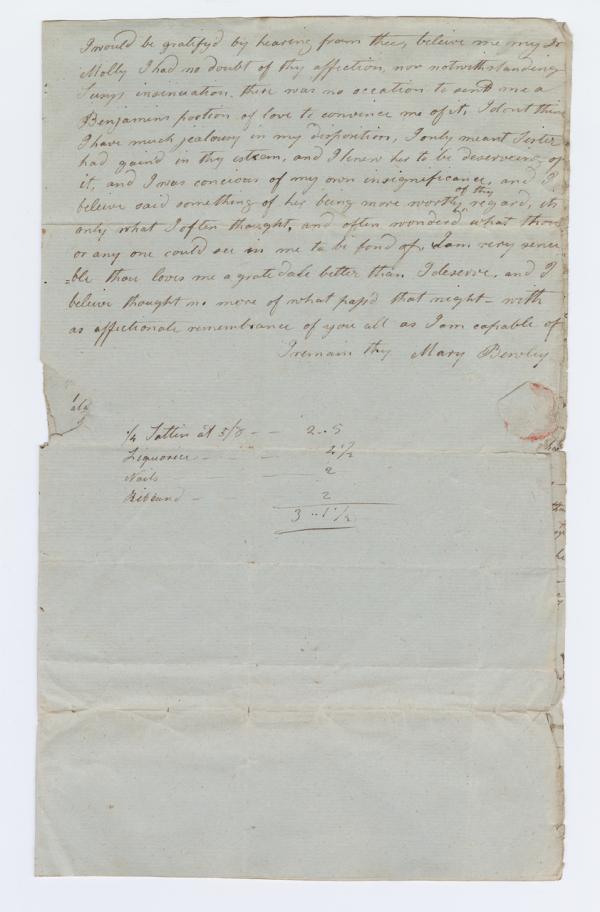 I would be gratifyd by hearing from thee, beleive me my Dr
Molly I had no doubt of thy affection, nor notwithstanding
insinuation there was no occation to send me a
Benjamins portion of love to convince me of it, I dont think
I have much jealousy in my disposition, I only meant Sister
had gaind in thy esteem, and I knew her to be deserveing of
it, and I was concious of my own insignificance, and I
beleive said something of her being more worthy of thy regard, its
only what I often thought, and often wonderd what thou
or any one could see in me to be fond of, I am very sensi
=ble thou loves me a grate deale better than I deserve, and I
beleive thought no more of what pass'd that night - with
as affectionate remembrance of you all as I am capable of
I remain thy Mary Bewley
1/2 Sattin at 5/8 - - 2..5
Liquorice - - - 2 1/2
Nails - 2
Ribband - 2
3..1 1/2